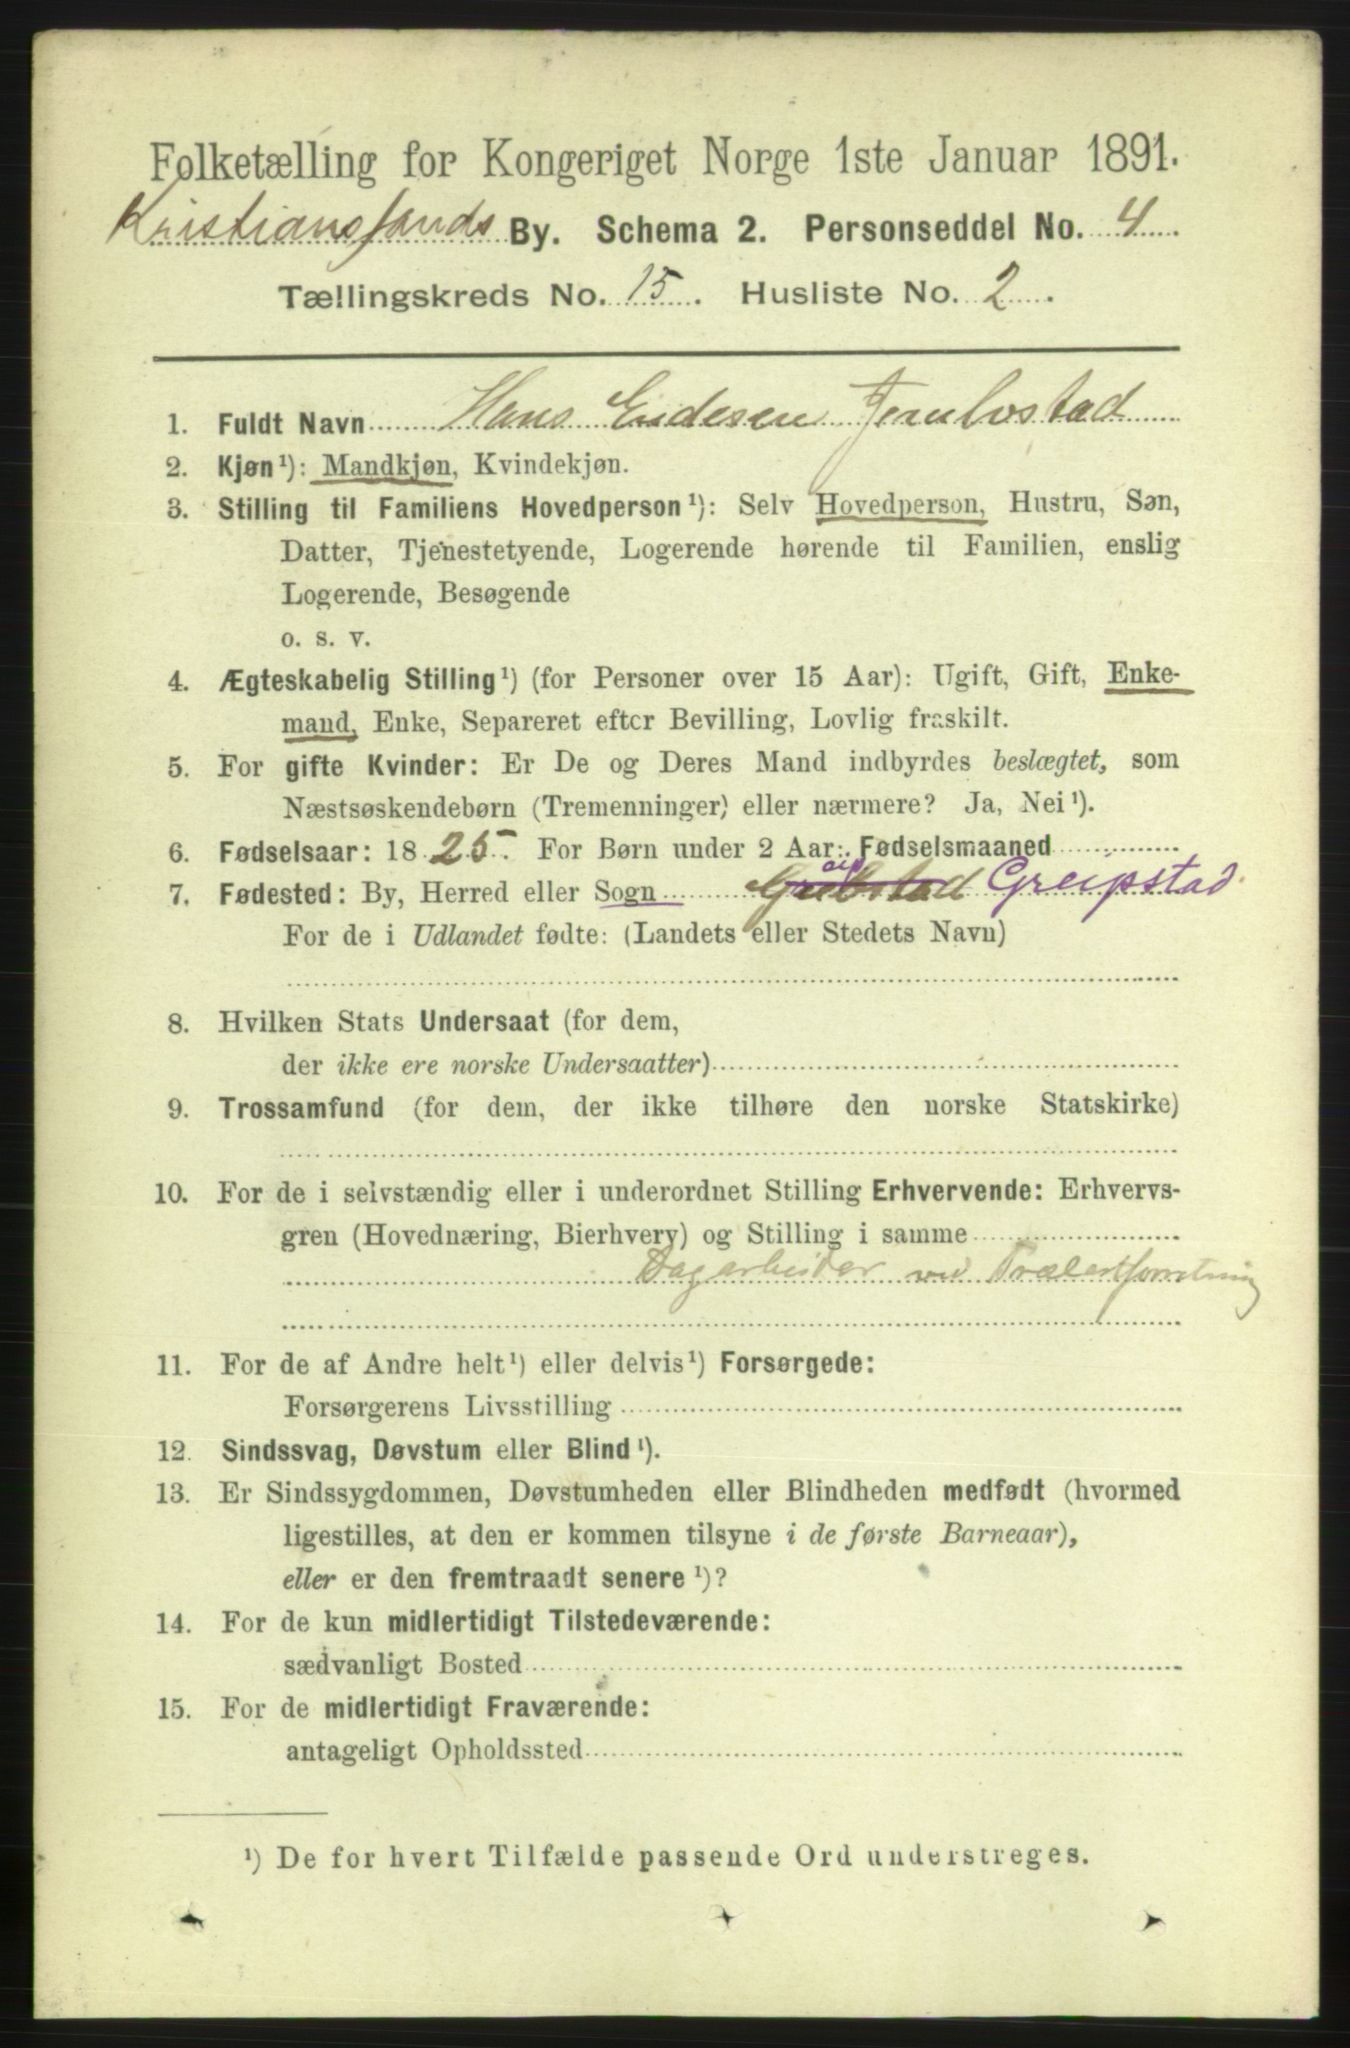 Folketælling for Kongeriget Norge 1ste Januar 1891.
Kristianssands By. Schema 2. Personseddel No. 4
Tællingskreds No. 15. Husliste No. 2.
1. Fuldt Navn Hans Endesen
2. Kjøn¹): Mandkjøn, Kvindekjøn.
3. Stilling til Familiens Hovedperson¹): Selv Hovedperson, Hustru, Søn,
Datter, Tjenestetyende, Logerende hørende til Familien, enslig
Logerende, Besøgende
o. s. v.
4. Ægteskabelig Stilling¹) (for Personer over 15 Aar): Ugift, Gift, Enke-
mand, Enke, Separeret efter Bevilling, Lovlig fraskilt.
5. For gifte Kvinder: Er De og Deres Mand indbyrdes beslægtet, som
Næstsøskendebørn (Tremenninger) eller nærmere? Ja, Nei¹).
6. Fødselsaar: 1825. For Børn under 2 Aar: Fødselsmaaned
7. Fødested: By, Herred eller Sogn Greipstad
For de i Udlandet fødte: (Landets eller Stedets Navn)
8. Hvilken Stats Undersaat (for dem,
der ikke ere norske Undersaatter)
9. Trossamfund (for dem, der ikke tilhøre den norske Statskirke)
10. For de i selvstændig eller i underordnet Stilling Erhvervende: Erhvervs-
gren (Hovednæring, Bierhverv) og Stilling i samme
Dagarbeider ved Trælastforretning
11. For de af Andre helt¹) eller delvis¹) Forsørgede:
Forsørgerens Livsstilling
12. Sindssvag, Døvstum eller Blind¹).
13. Er Sindssygdommen, Døvstumheden eller Blindheden medfødt (hvormed
ligestilles, at den er kommen tilsyne i de første Barneaar),
eller er den fremtraadt senere¹)?
14. For de kun midlertidigt Tilstedeværende:
sædvanligt Bosted
15. For de midlertidigt Fraværende:
antageligt Opholdssted
¹) De for hvert Tilfælde passende Ord understreges.